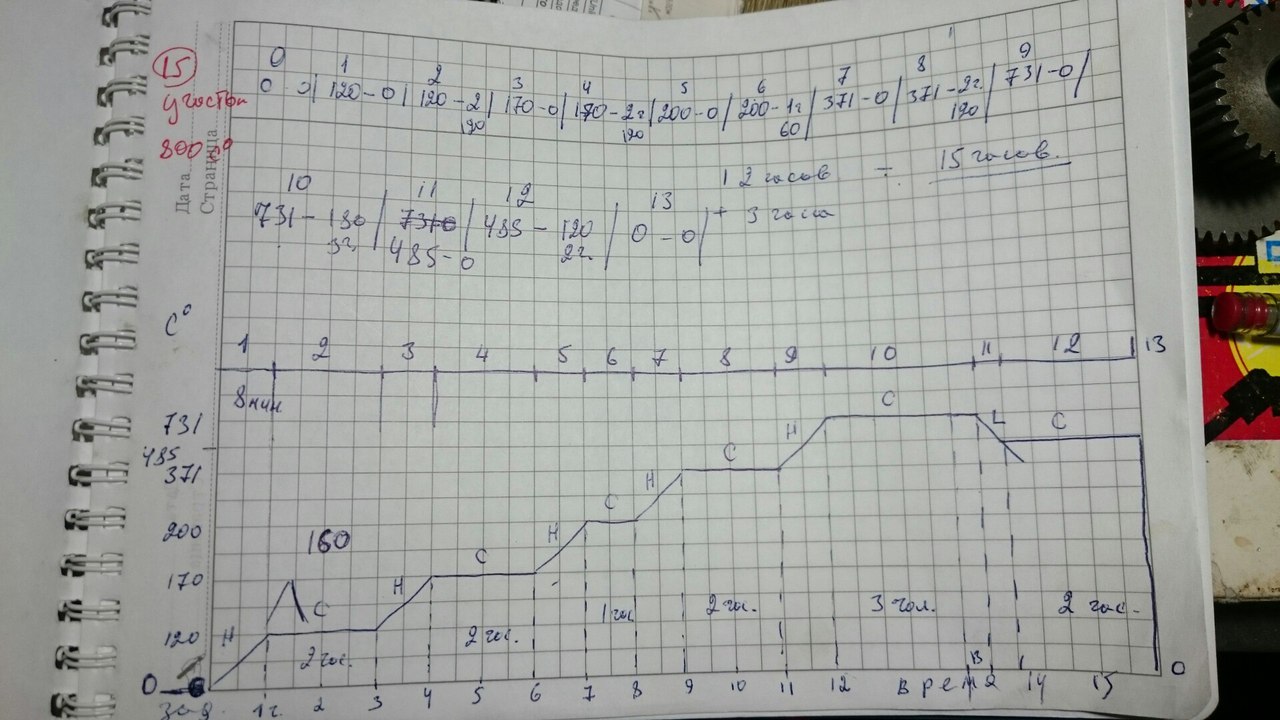 15
участок
800 гр
Дата
Страница
0 1 2 3 4 5 6 7 8 9
0 0| 120-0| 120-2| 170-0| 170-2г| 200-0| 200-1г| 371-0| 371-2г| 731-0|
120 120 60 120
12 часов - 15 часов.
+ 3 часа
10 11 12 13
731- 180| 7310| 485- 120| 0-0|
3г. 485-0 2г.
C°
1 2 3 4 5 6 7 8 9 10 11 12 13
8 мин
731
485
371
200
170
120
0
160
Н С Н С Н С Н С Н С L С
2 час. 2 час. 1 час 2 час. 3 час. 2 час.
0
зад. 1г. 2 3 4 5 6 7 8 9 10 11 12 время 13 14 15